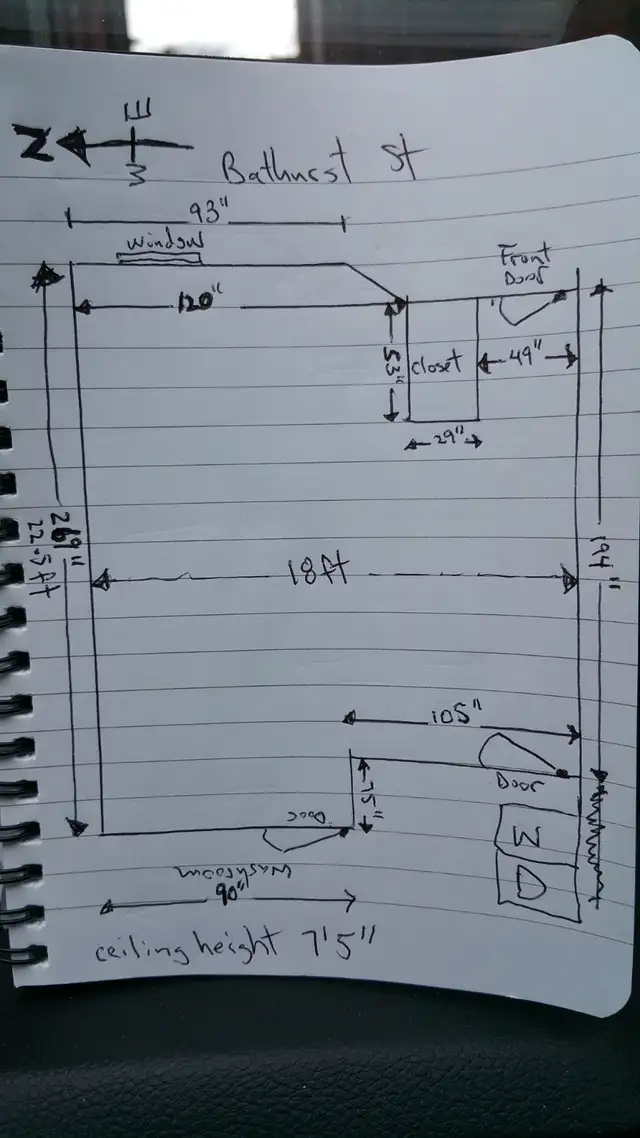 E
N
W
Bathurst St
93"
window
Front
Door
120"
53"
closet
49"
29"
269"
22.5ft
18ft
194"
105"
75"
Door
Door
W
D
Washroom
90"
ceiling height 7'5"